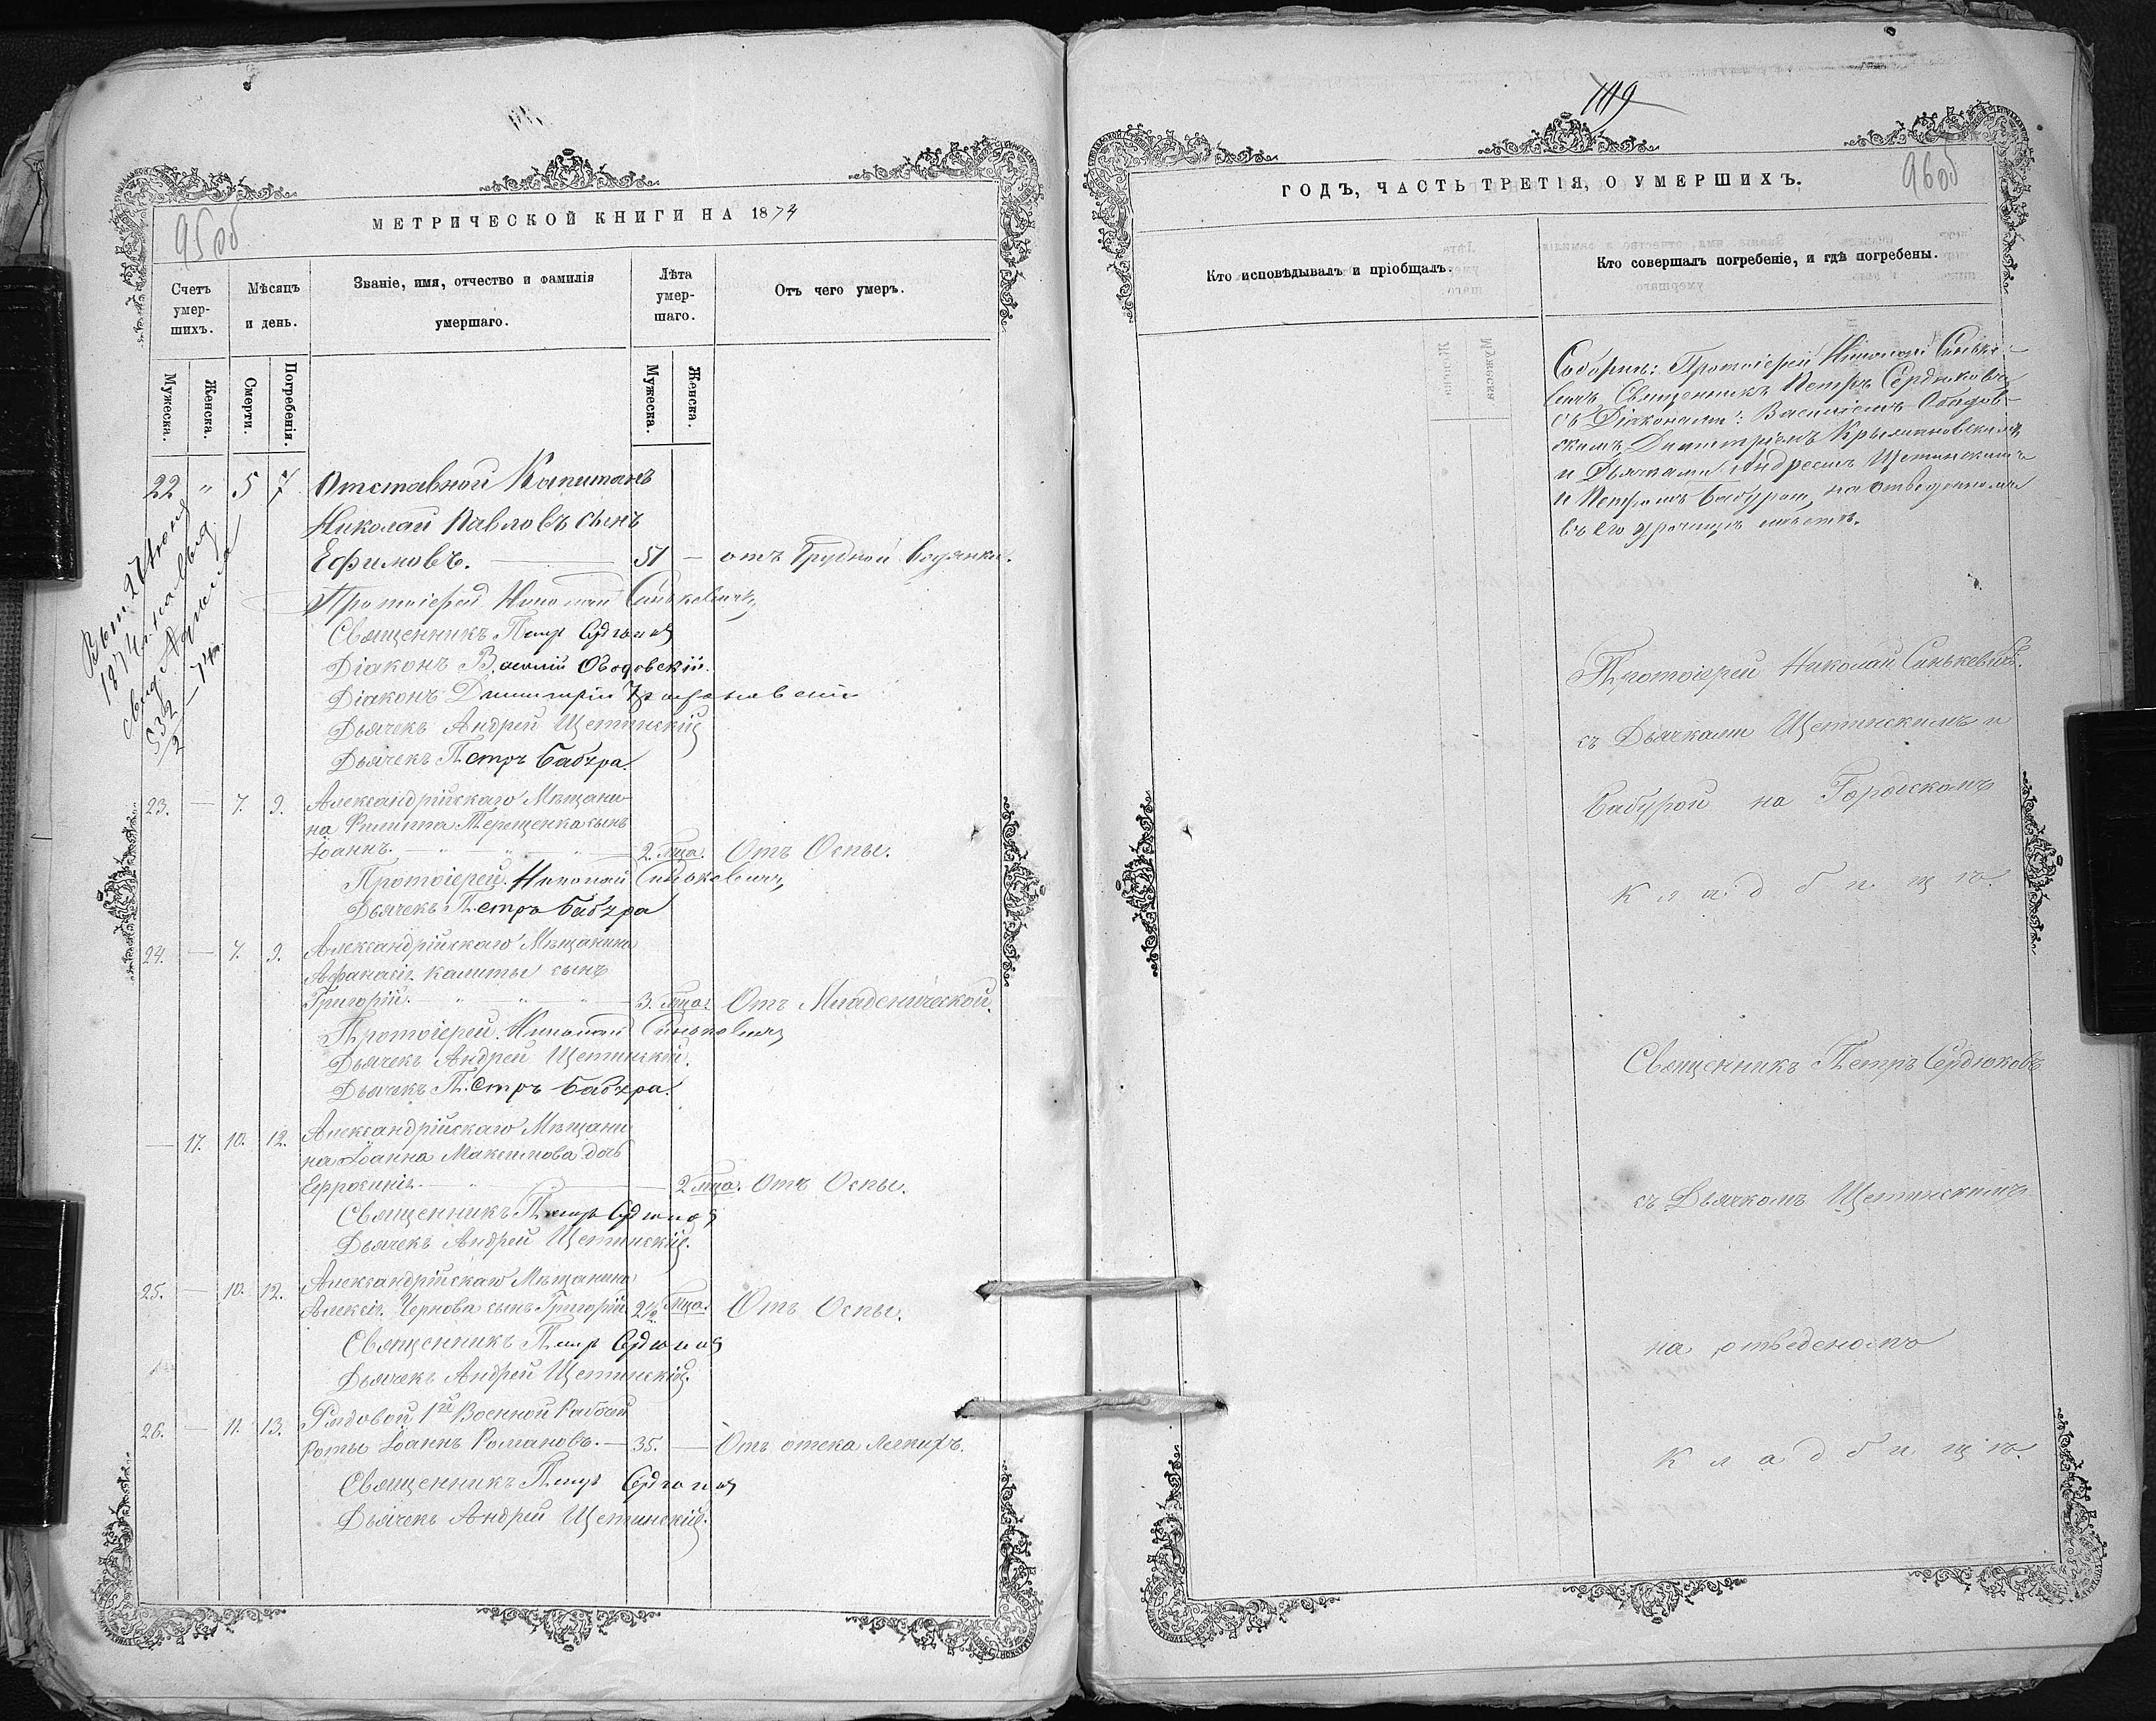 95об
МЕТРИЧЕСКОЙ КНИГИ НА 1874
Счетъ умер-шихъ.
Мѣсяцъ и день.
Званіе, имя, отчество и фамилія умершаго.
Лѣта умер-шаго.
Отъ чего умеръ.
Мужеска.
Женска.
Смерти.
Погребенія.
Мужеска.
Женска.
22 " 5 7 Отставной Капитанъ
Николай Павловъ сынъ
Ефимовъ. 51 — отъ Грудной водянки.
Протоіерей Николай Синькевичъ
Священникъ Петръ Сердюковъ
Діаконъ Василій Ободовскій.
Діаконъ Димитрій
Дьячекъ Андрей Щетинскій
Дьячекъ Петръ Бабура.
23. — 7. 9. Александрійскаго Мѣщани-
на Филиппа Терещенка сынъ
Іоаннъ. 2. мца. Отъ Оспы.
Протоіерей Николай Синькевичъ
Дьячекъ Петръ Бабура
24. — 7. 9. Александрійскаго Мѣщанина
Афанасія Калиты сынъ
Григорій. 3. мца. Отъ Младенческой.
Протоіерей Николай Синькевичъ
Дьячекъ Андрей Щетинскій.
Дьячекъ Петръ Бабура.
— 17. 10. 12. Александрійскаго Мѣщани-
на Іоанна Максимова дочь
Ефросинія. — 2 мца. Отъ Оспы.
Священникъ Петръ Сердюковъ
Дьячекъ Андрей Щетинскій.
25. — 10. 12. Александрійскаго Мѣщанина
Алексія Чернова сынъ Григорій 2½ мца. Отъ Оспы.
Священникъ Петръ Сердюковъ
Дьячекъ Андрей Щетинскій.
26. — 11. 13. Рядовой 1й Военной Рабочей
роты Іоаннъ Романовъ. — 35. — Отъ отека легкихъ.
Священникъ Петръ Сердюковъ
Дьячекъ Андрей Щетинскій.
1119
96об
ГОДЪ, ЧАСТЬ ТРЕТІЯ, О УМЕРШИХЪ.
Кто исповѣдывалъ и пріобщалъ.
Кто совершалъ погребеніе, и гдѣ погребены.
Соборнѣ: Протоіерей Николай Синьке-
вичъ Священникъ Петръ Сердюковъ
съ Діаконами: Василіемъ Ободов-
скимъ, Димитріемъ
и Дьячками Андреемъ Щетинскимъ
и Петромъ Бабурою, на отведенномъ
въ его урочищѣ мѣстѣ.
Протоіерей Николай Синькевичъ.
съ Дьячками Щетинскимъ и
Бабурой на Городскомъ
кладбищѣ.
Священникъ Петръ Сердюковъ
съ Дьячкомъ Щетинскимъ
на отведеномъ
кладбищѣ.